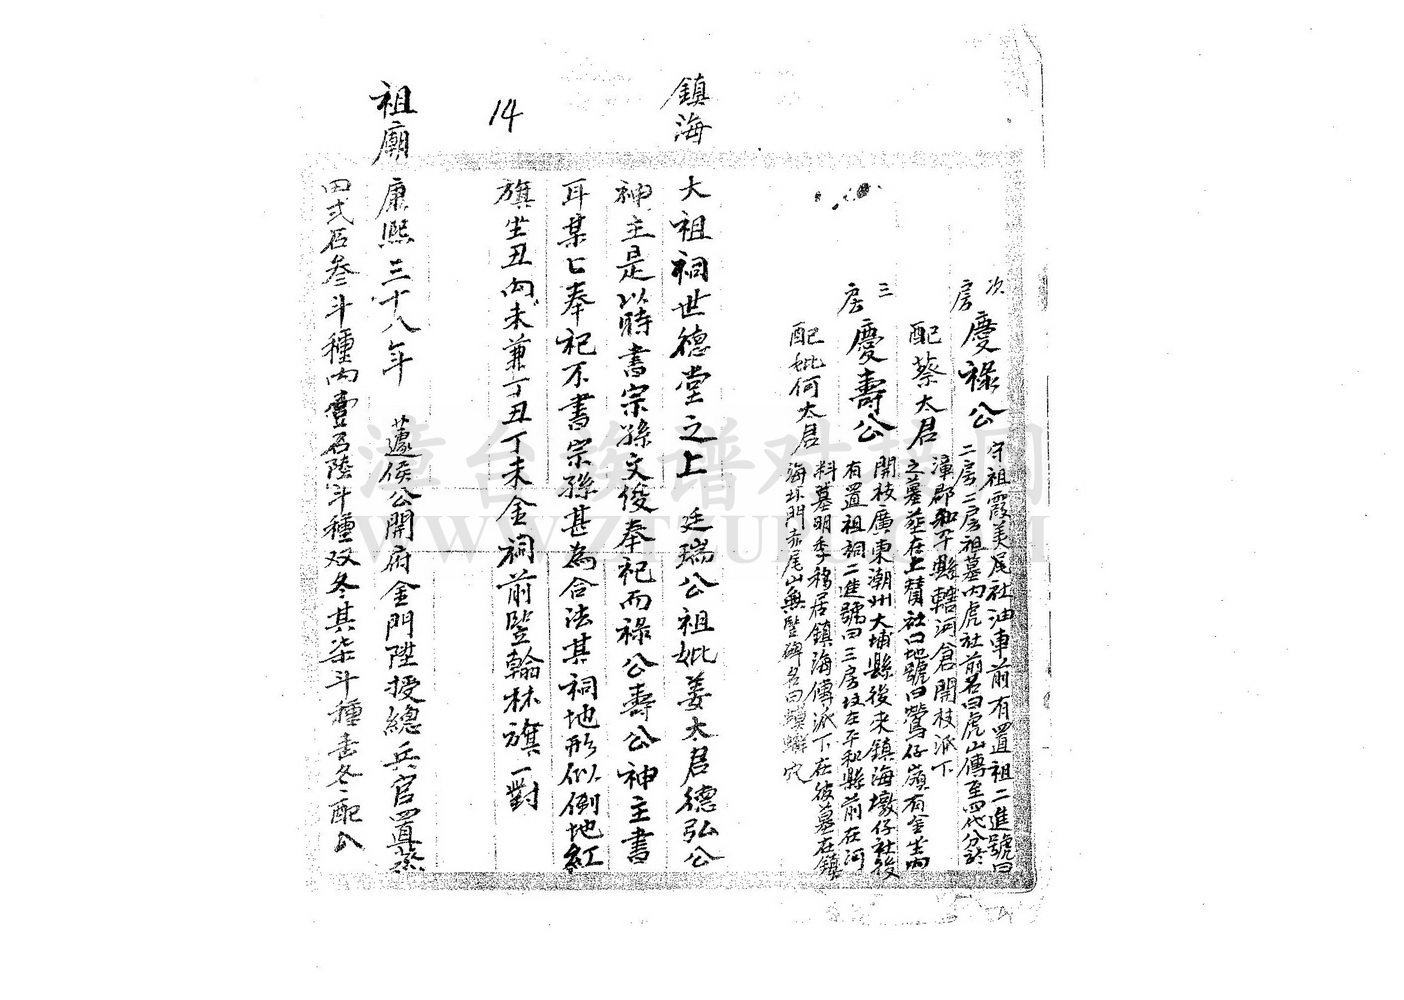 次房
慶祿公
守祖霞美尾社油車前有置祖二進號曰
二房二房祖墓內虎社前名曰虎山傳至四代分於
配蔡太君
漳郡和平縣轄河倉開枝派下
之墓葬在上贊社口地號曰鶯仔嶺有金坐向
三房
慶壽公
開枝廣東潮州大埔縣後來鎮海墩仔社後
有置祖祠二進號曰三房坟在平和縣前在河
配妣何太君
料墓明季移居鎮海傳派下在彼墓在鎮
海 門赤尾山無豎碑名曰 穴
鎮海
大祖祠世德堂之上 廷瑞公祖妣姜太君德弘公
神主是以時書宗孫文俊奉祀而祿公壽公神主書
耳某匕奉祀不書宗孫甚為合法其祠地形似倒地紅
旗坐丑向未兼丁丑丁未金祠前豎翰林旗一對
14
祖廟
康熙三十八年 蘧侯公開府金門陞授總兵官置蒸
田弍石叁斗種內壹石陸斗種双冬其柒斗種 冬配公
漳台族谱对接网
WWW.ZTZUPU.COM